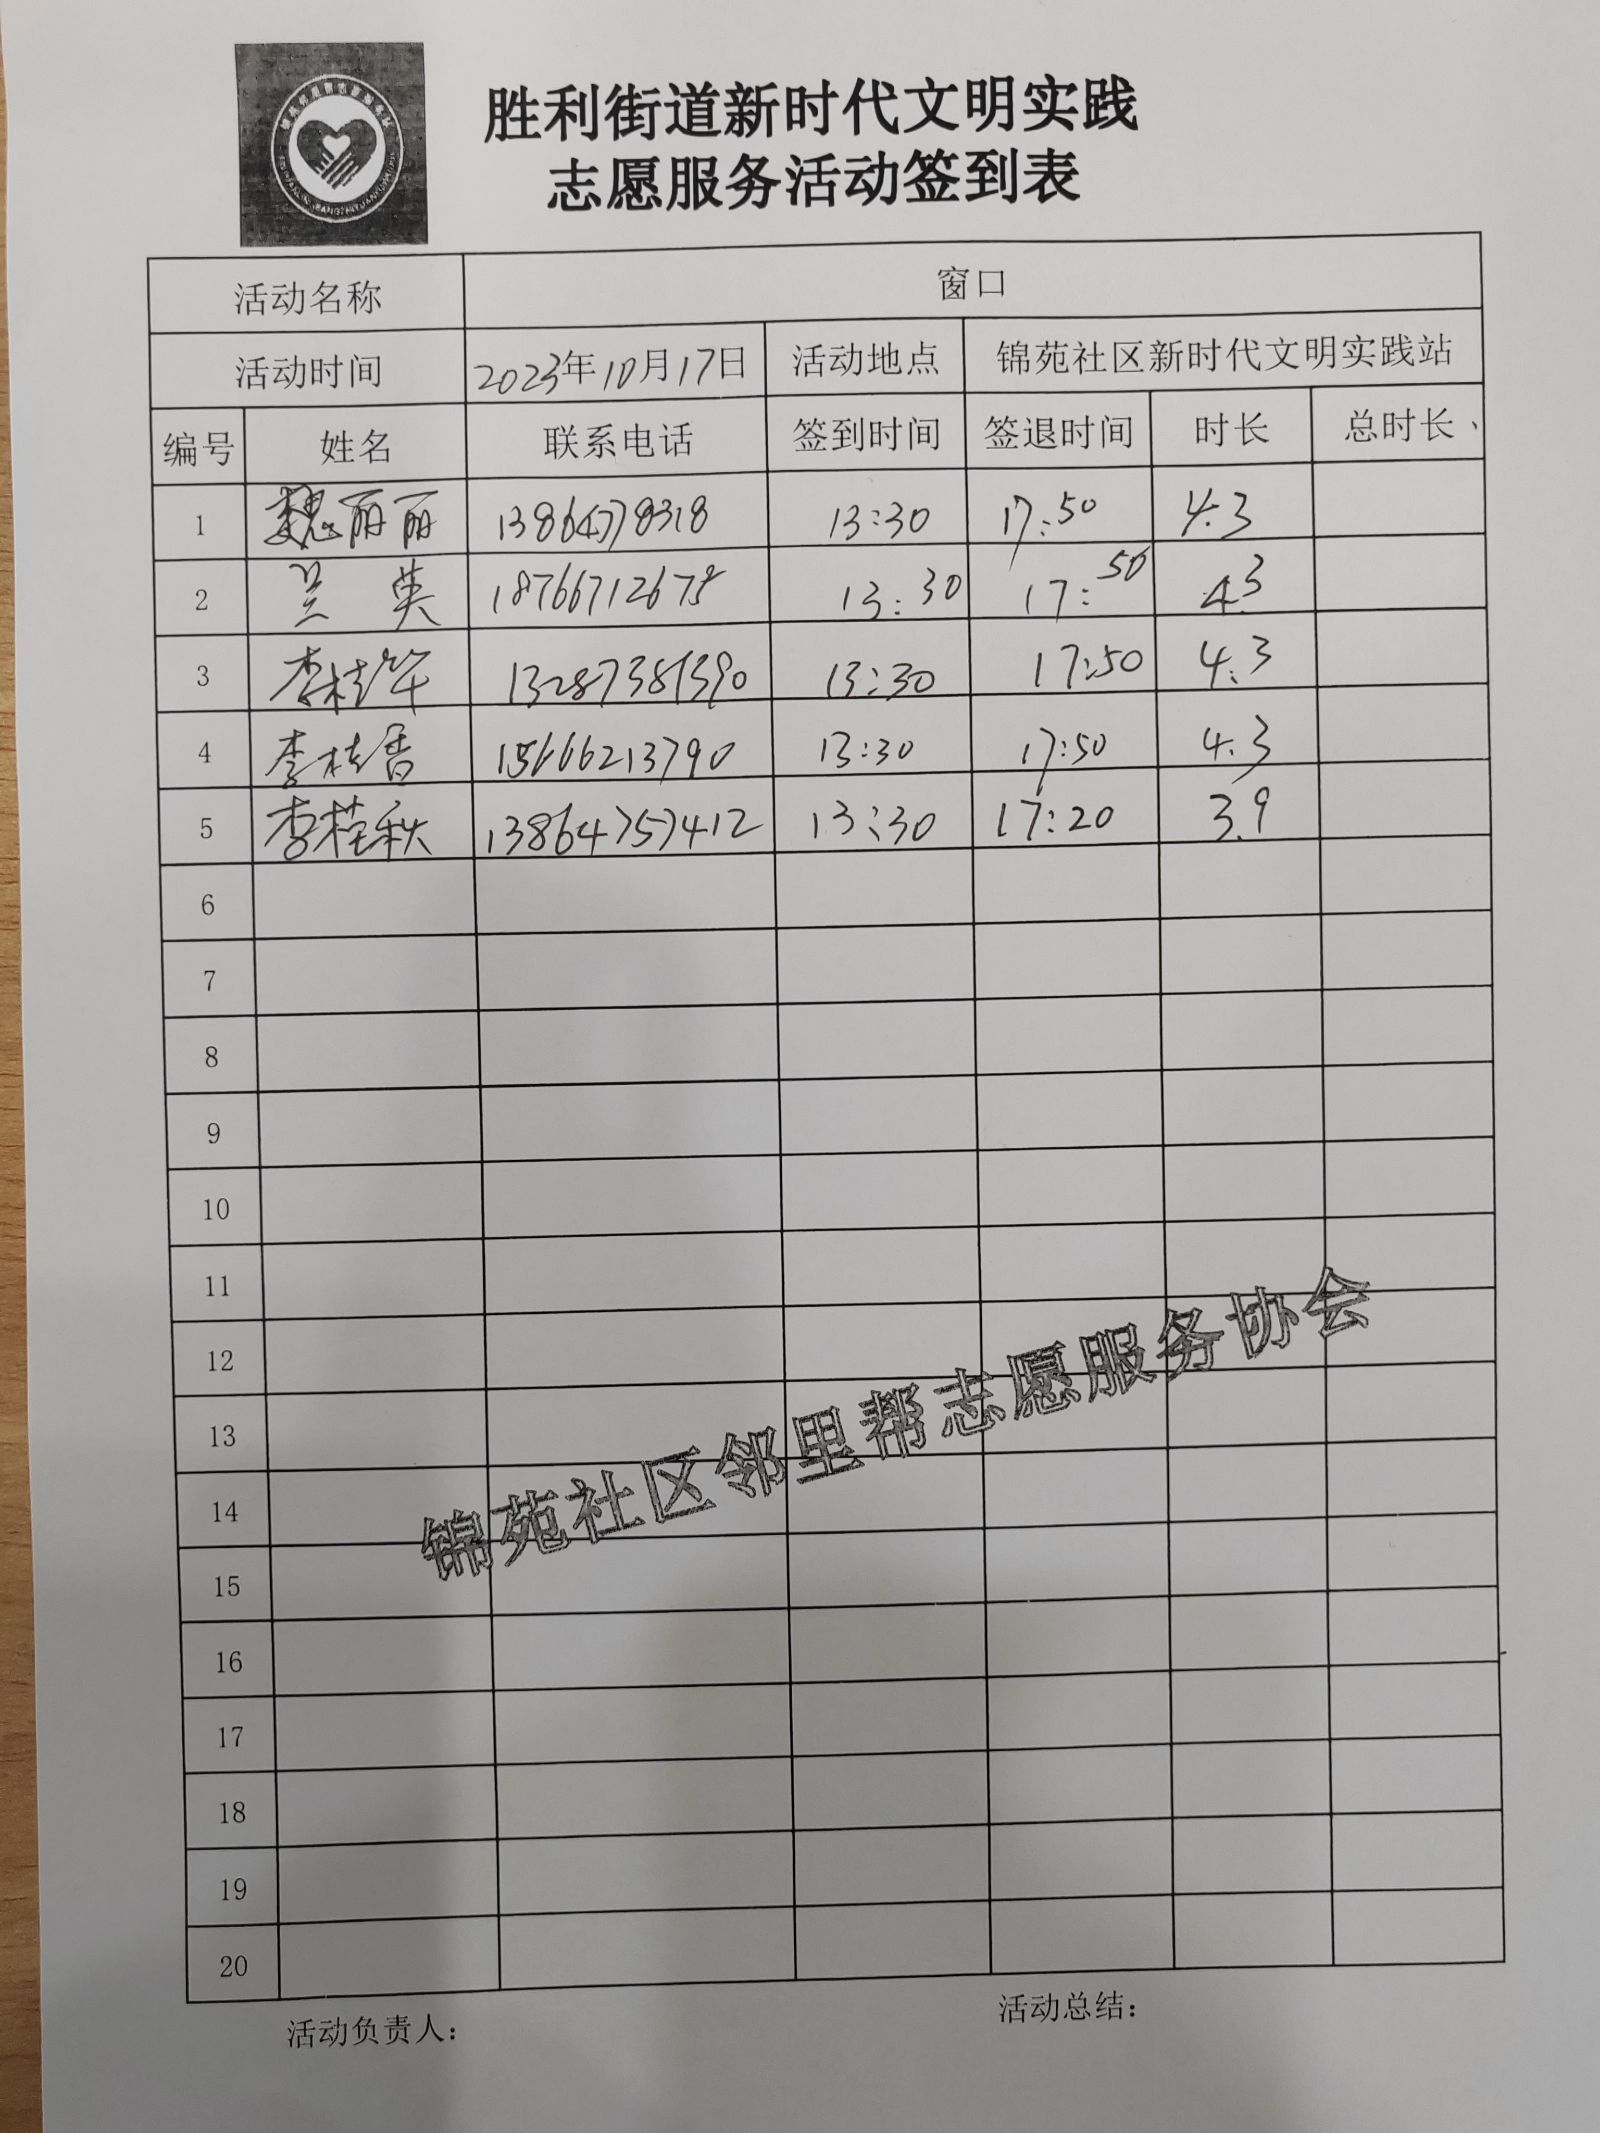 胜利街道新时代文明实践
志愿服务活动签到表
活动名称 窗口
活动时间 2023年10月17日 活动地点 锦苑社区新时代文明实践站
编号 姓名 联系电话 签到时间 签退时间 时长 总时长
1 魏丽丽 13864778318 13:30 17:50 4.3
2 兰英 13:30 17:50 4.3
3 李桂华 13287381390 13:30 17:50 4.3
4 李桂香 15666213790 13:30 17:50 4.3
5 李槿秋 13864757412 13:30 17:20 3.9
6
7
8
9
10
11
12
13
14
15
16
17
18
19
20
锦苑社区邻里帮志愿服务协会
活动负责人： 活动总结：